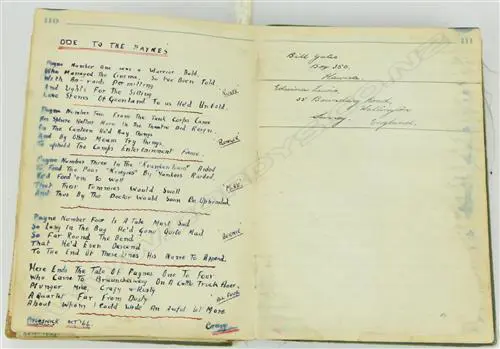 110
ODE TO THE PAYNES
Payne Number One was a Warrior Bold,
Who Managed The Cinema, So I've Been Told
With Air-raids Permitting
And Lights For The Sitting
Love Stories Of Greenland To us He'd Unfold.
Payne Number Two From The Tank Corps Came
His Sphere Hother More In The Theatre Did Reign.
To The Canteen He'd Bay things
And By Other Means Try things,
To uphold The Camps Entertainment Fame.
Payne Number Three In The "Krankenhaus" Aided
To Feed The Poor "Kriegies" By Yankees Raided
He'd Feed 'em So Well
That Their Tummies Would Swell
And Thus By The Doctor Would Soon Be Upbraided.
MIKE.
Payne Number Four Is A Tale Most Sad
So Long In The Bag He'd Gone Quite Mad
So Far Round The Bend
That He'd Even Descend
To The End Of These Lines His Name To Append.
Here Ends The Tale Of Paynes One To Four
Who Came To Braunschweig On A Cattle Truck Floor.
Munger Mike, Crazy & Rusty
A Quartet Far From Dusty
About Whom I Could Write An Awful Lot More
Brunswick Oct '44
Crazy
111
Bill Yates
Box 350,
Hawera.
Edwina Lewis,
55 Boundary Road,
Wallington
Surrey
England.